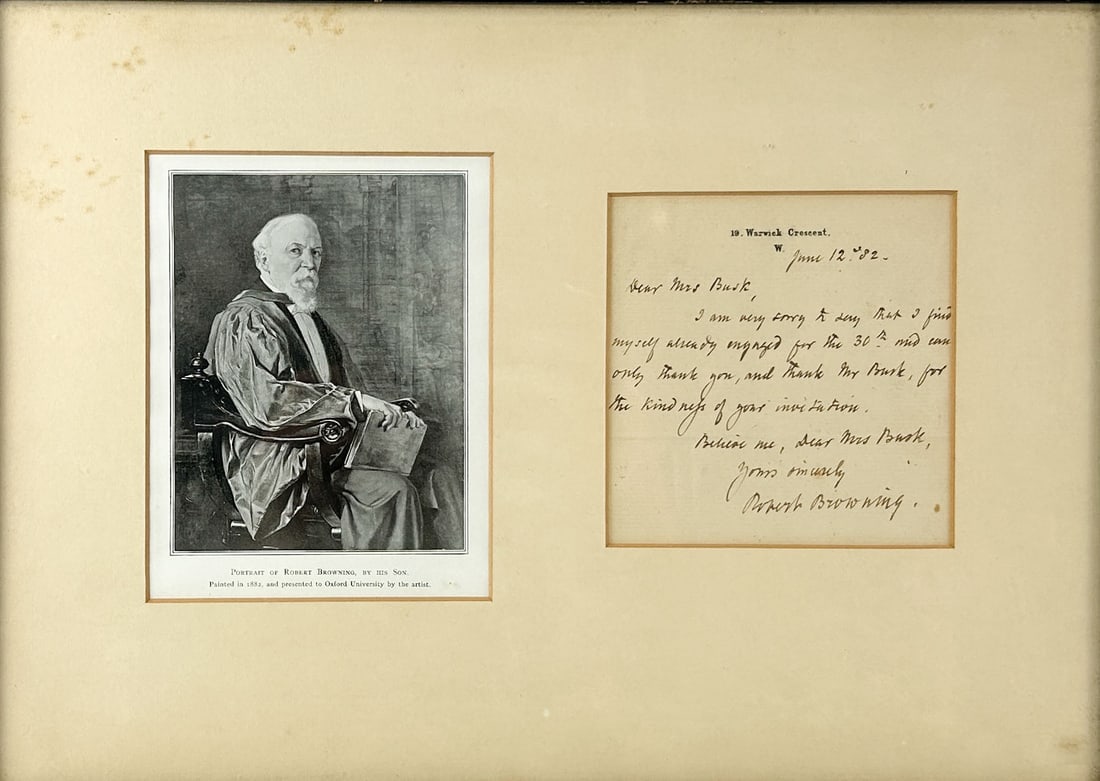 PORTRAIT OF ROBERT BROWNING, BY HIS SON.
Painted in 1882, and presented to Oxford University by the artist.
19. Warwick Crescent.
W.
June 12. '82.
Dear Mrs Busk,
I am very sorry to say that I find
myself already engaged for the 30th and can
only thank you, and thank Mr Busk, for
the kindness of your invitation.
Believe me, Dear Mrs Busk,
Yours sincerely
Robert Browning.